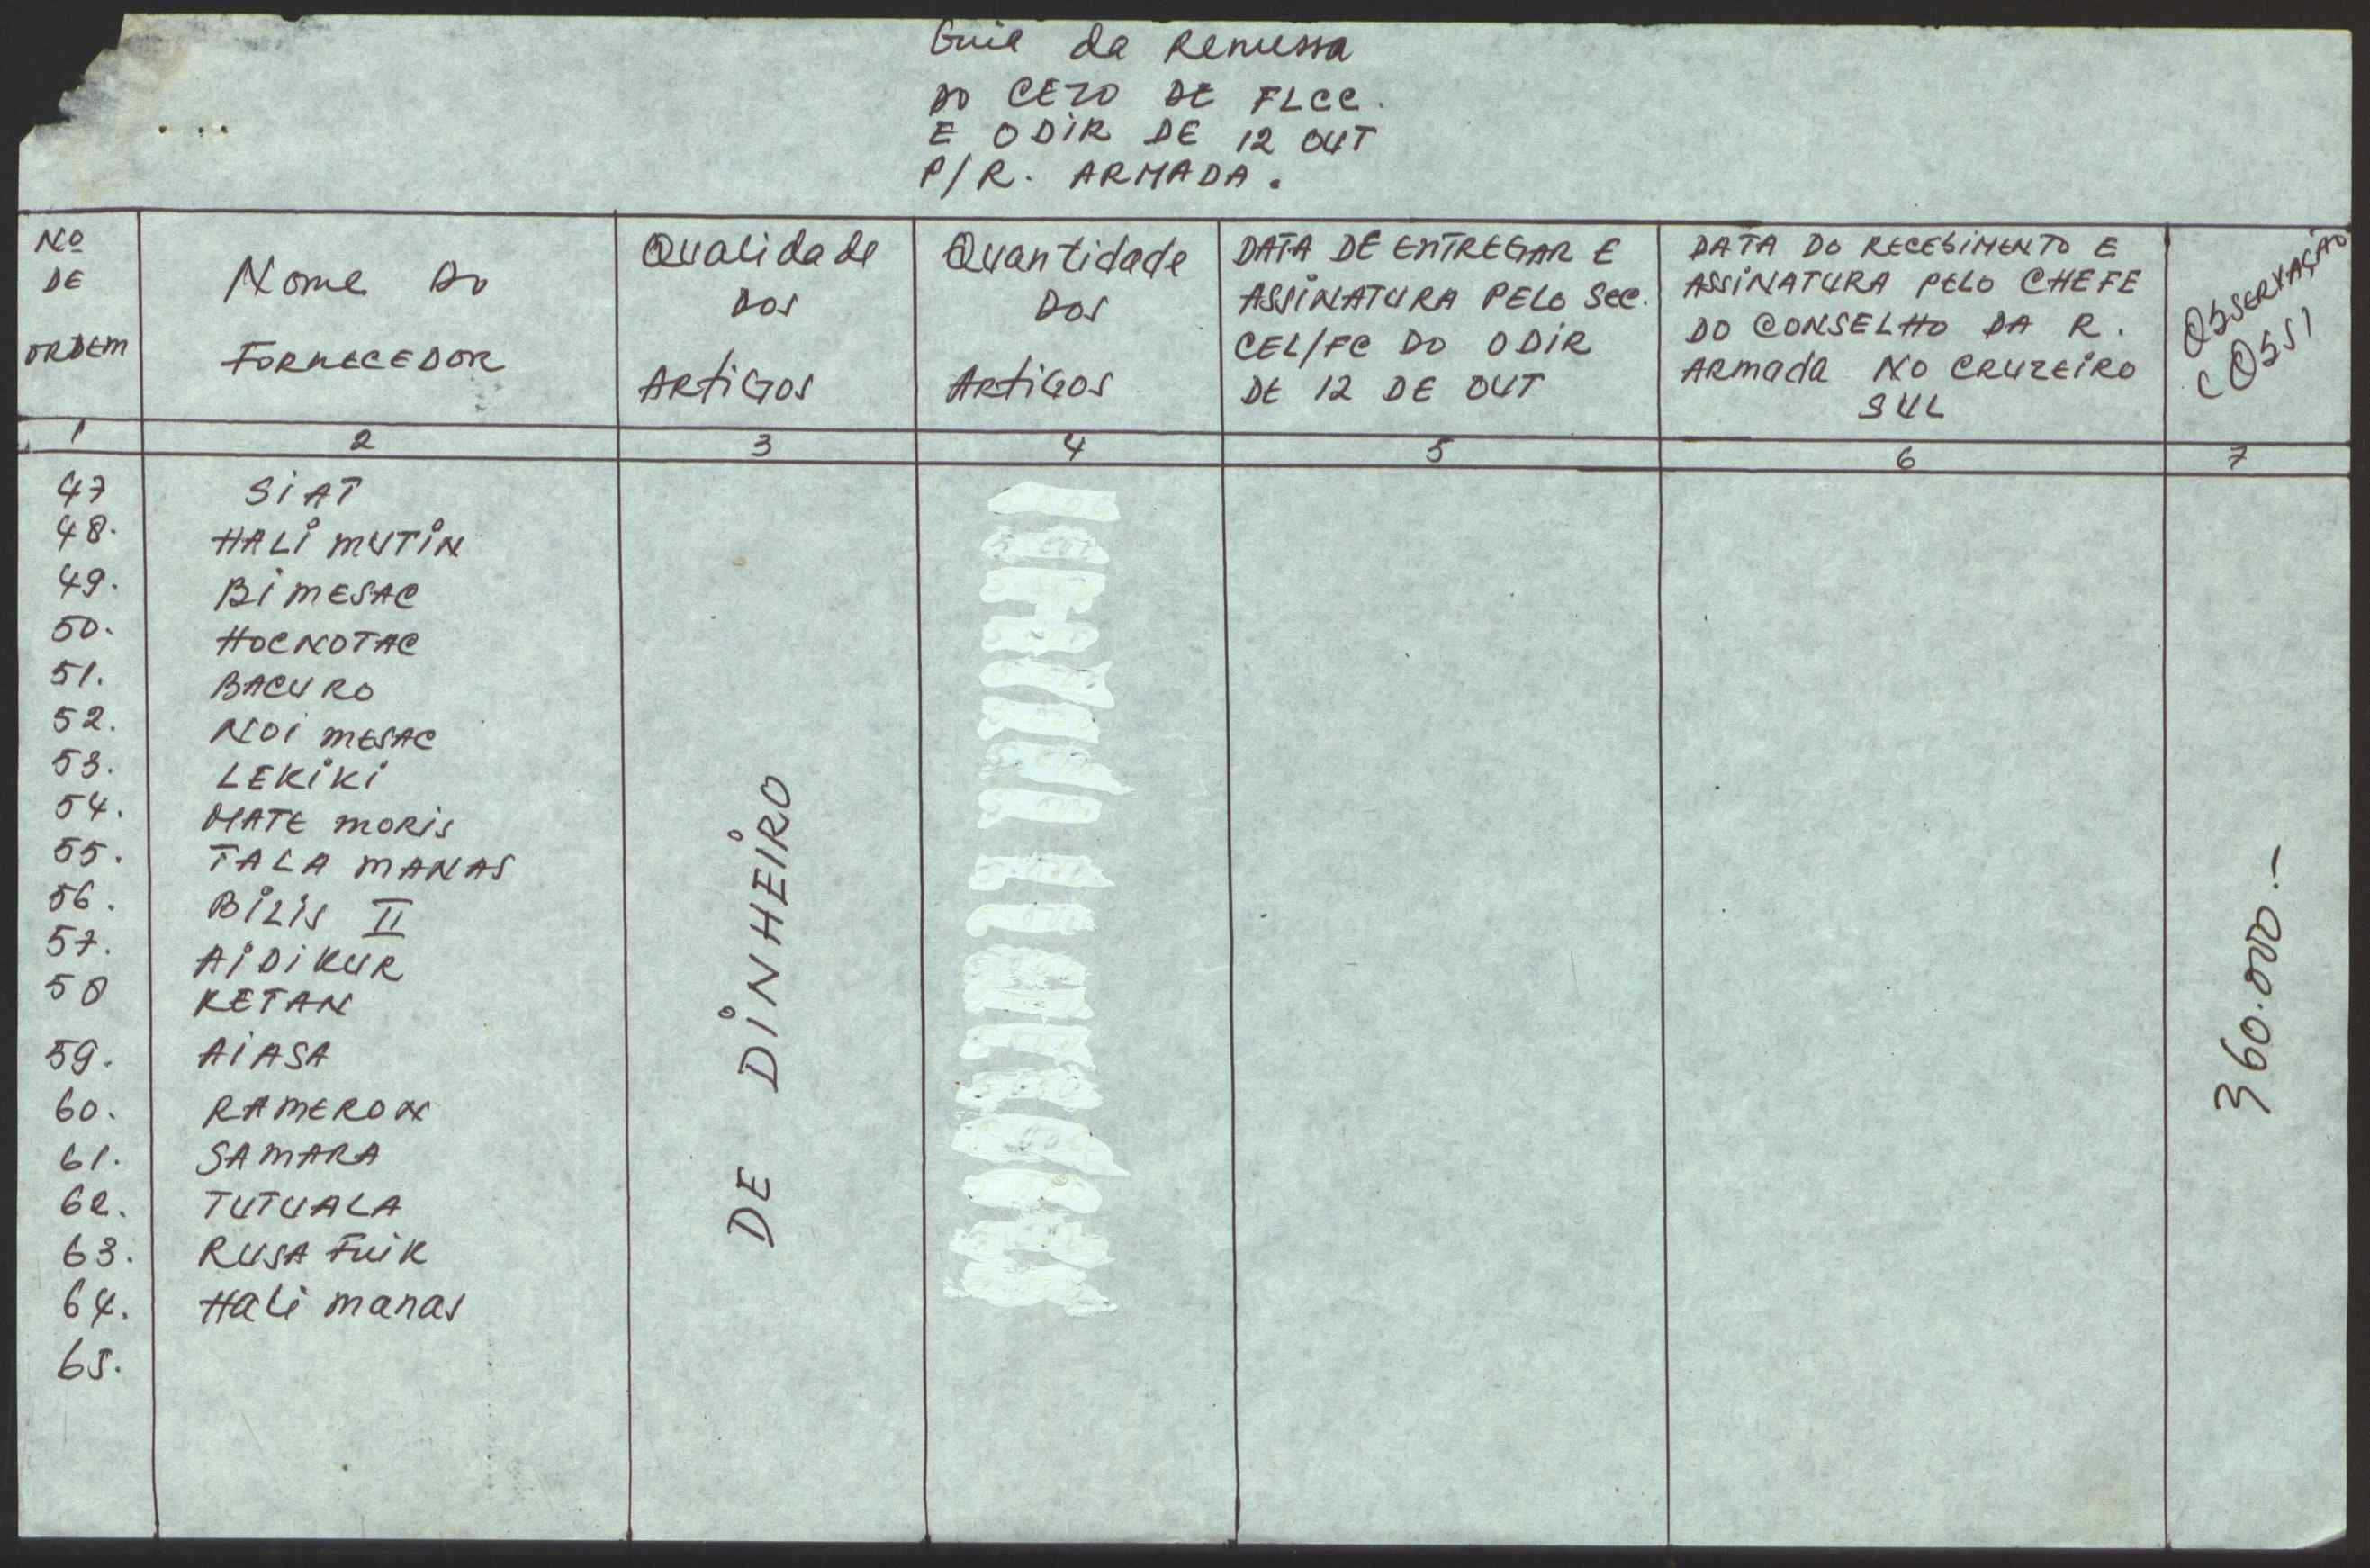 Guia da Remessa
DO CEZO DE FLCC.
E ODIR DE 12 OUT
P/R. ARMADA.
Nº
DE
ORDEM
Nome Do
FORNECEDOR
Qualidade
DOS
ARTIGOS
Quantidade
DOS
ARTIGOS
DATA DE ENTREGAR E
ASSINATURA PELO SEC.
CEL/FC DO ODIR
DE 12 DE OUT
DATA DO RECEBIMENTO E
ASSINATURA PELO CHEFE
DO CONSELHO DA R.
Armada NO CRUZEIRO
SUL
OBSERVAÇÃO
1 2 3 4 5 6 7
47 SIAT
48. HALI MUTIN
49. BIMESAC
50. HOCNOTAC
51. BACURO
52. NOI MESAC
53. LEKIKI
54. MATE MORIS
55. TALA MANAS
56. BILIS II
57. AIDIKUR
58 KETAN
59. AIASA
60. RAMERON
61. SAMARA
62. TUTUALA
63. RUSA FUIK
64. Hali manas
65.
DE DINHEIRO
360.000.-